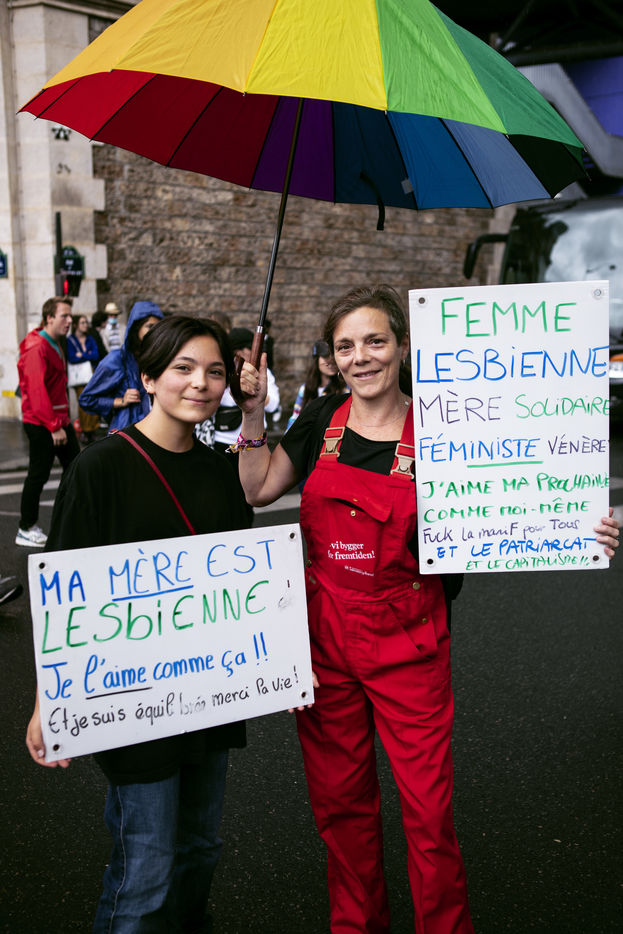 FEMME
LESBIENNE
MÈRE SOLIDAIRE
FÉMINISTE VÉNÈRE
J'AIME MA PROCHAINE
COMME MOI-MÊME
Fuck la manif pour Tous
ET LE PATRIARCAT
ET LE CAPITALISME!!
MA MÈRE EST
LESBIENNE!
Je l'aime comme ça!!
Et je suis équilibrée merci la vie!
-vi bygger
fremtiden!